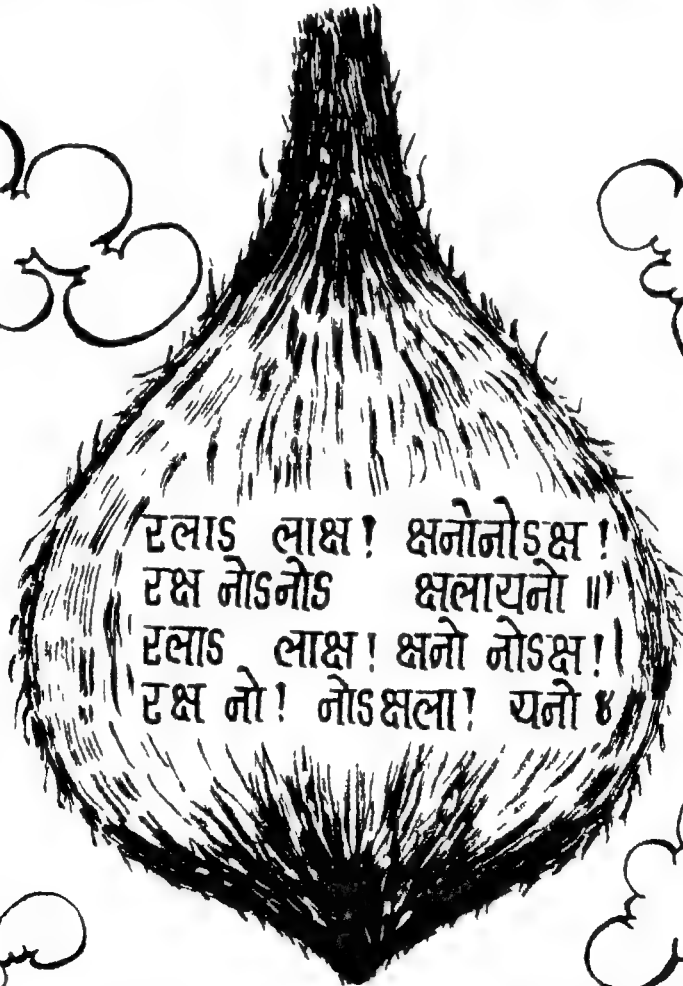 रलाऽ लाक्ष! क्षनोनोऽक्ष!
रक्ष नोऽनोऽ क्षलायनो ॥
रलाऽ लाक्ष! क्षनो नोऽक्ष!
रक्ष नो! नोऽक्षला! यनो ४